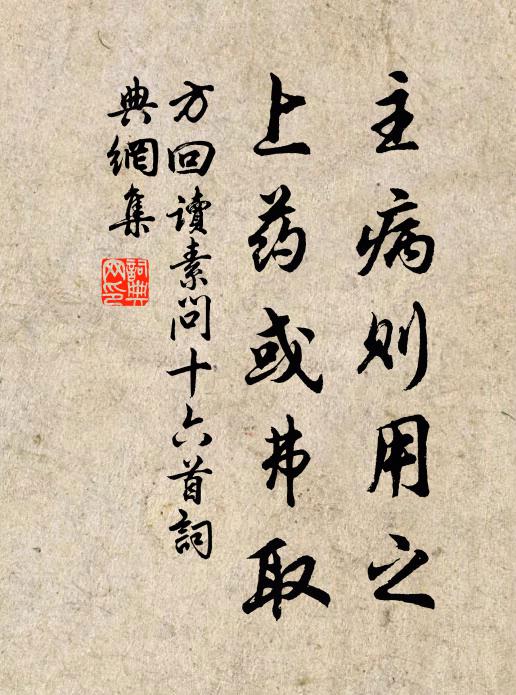 主病则用之
上药或弗取
方回讀素問十六首詞
典網集
詞典網印